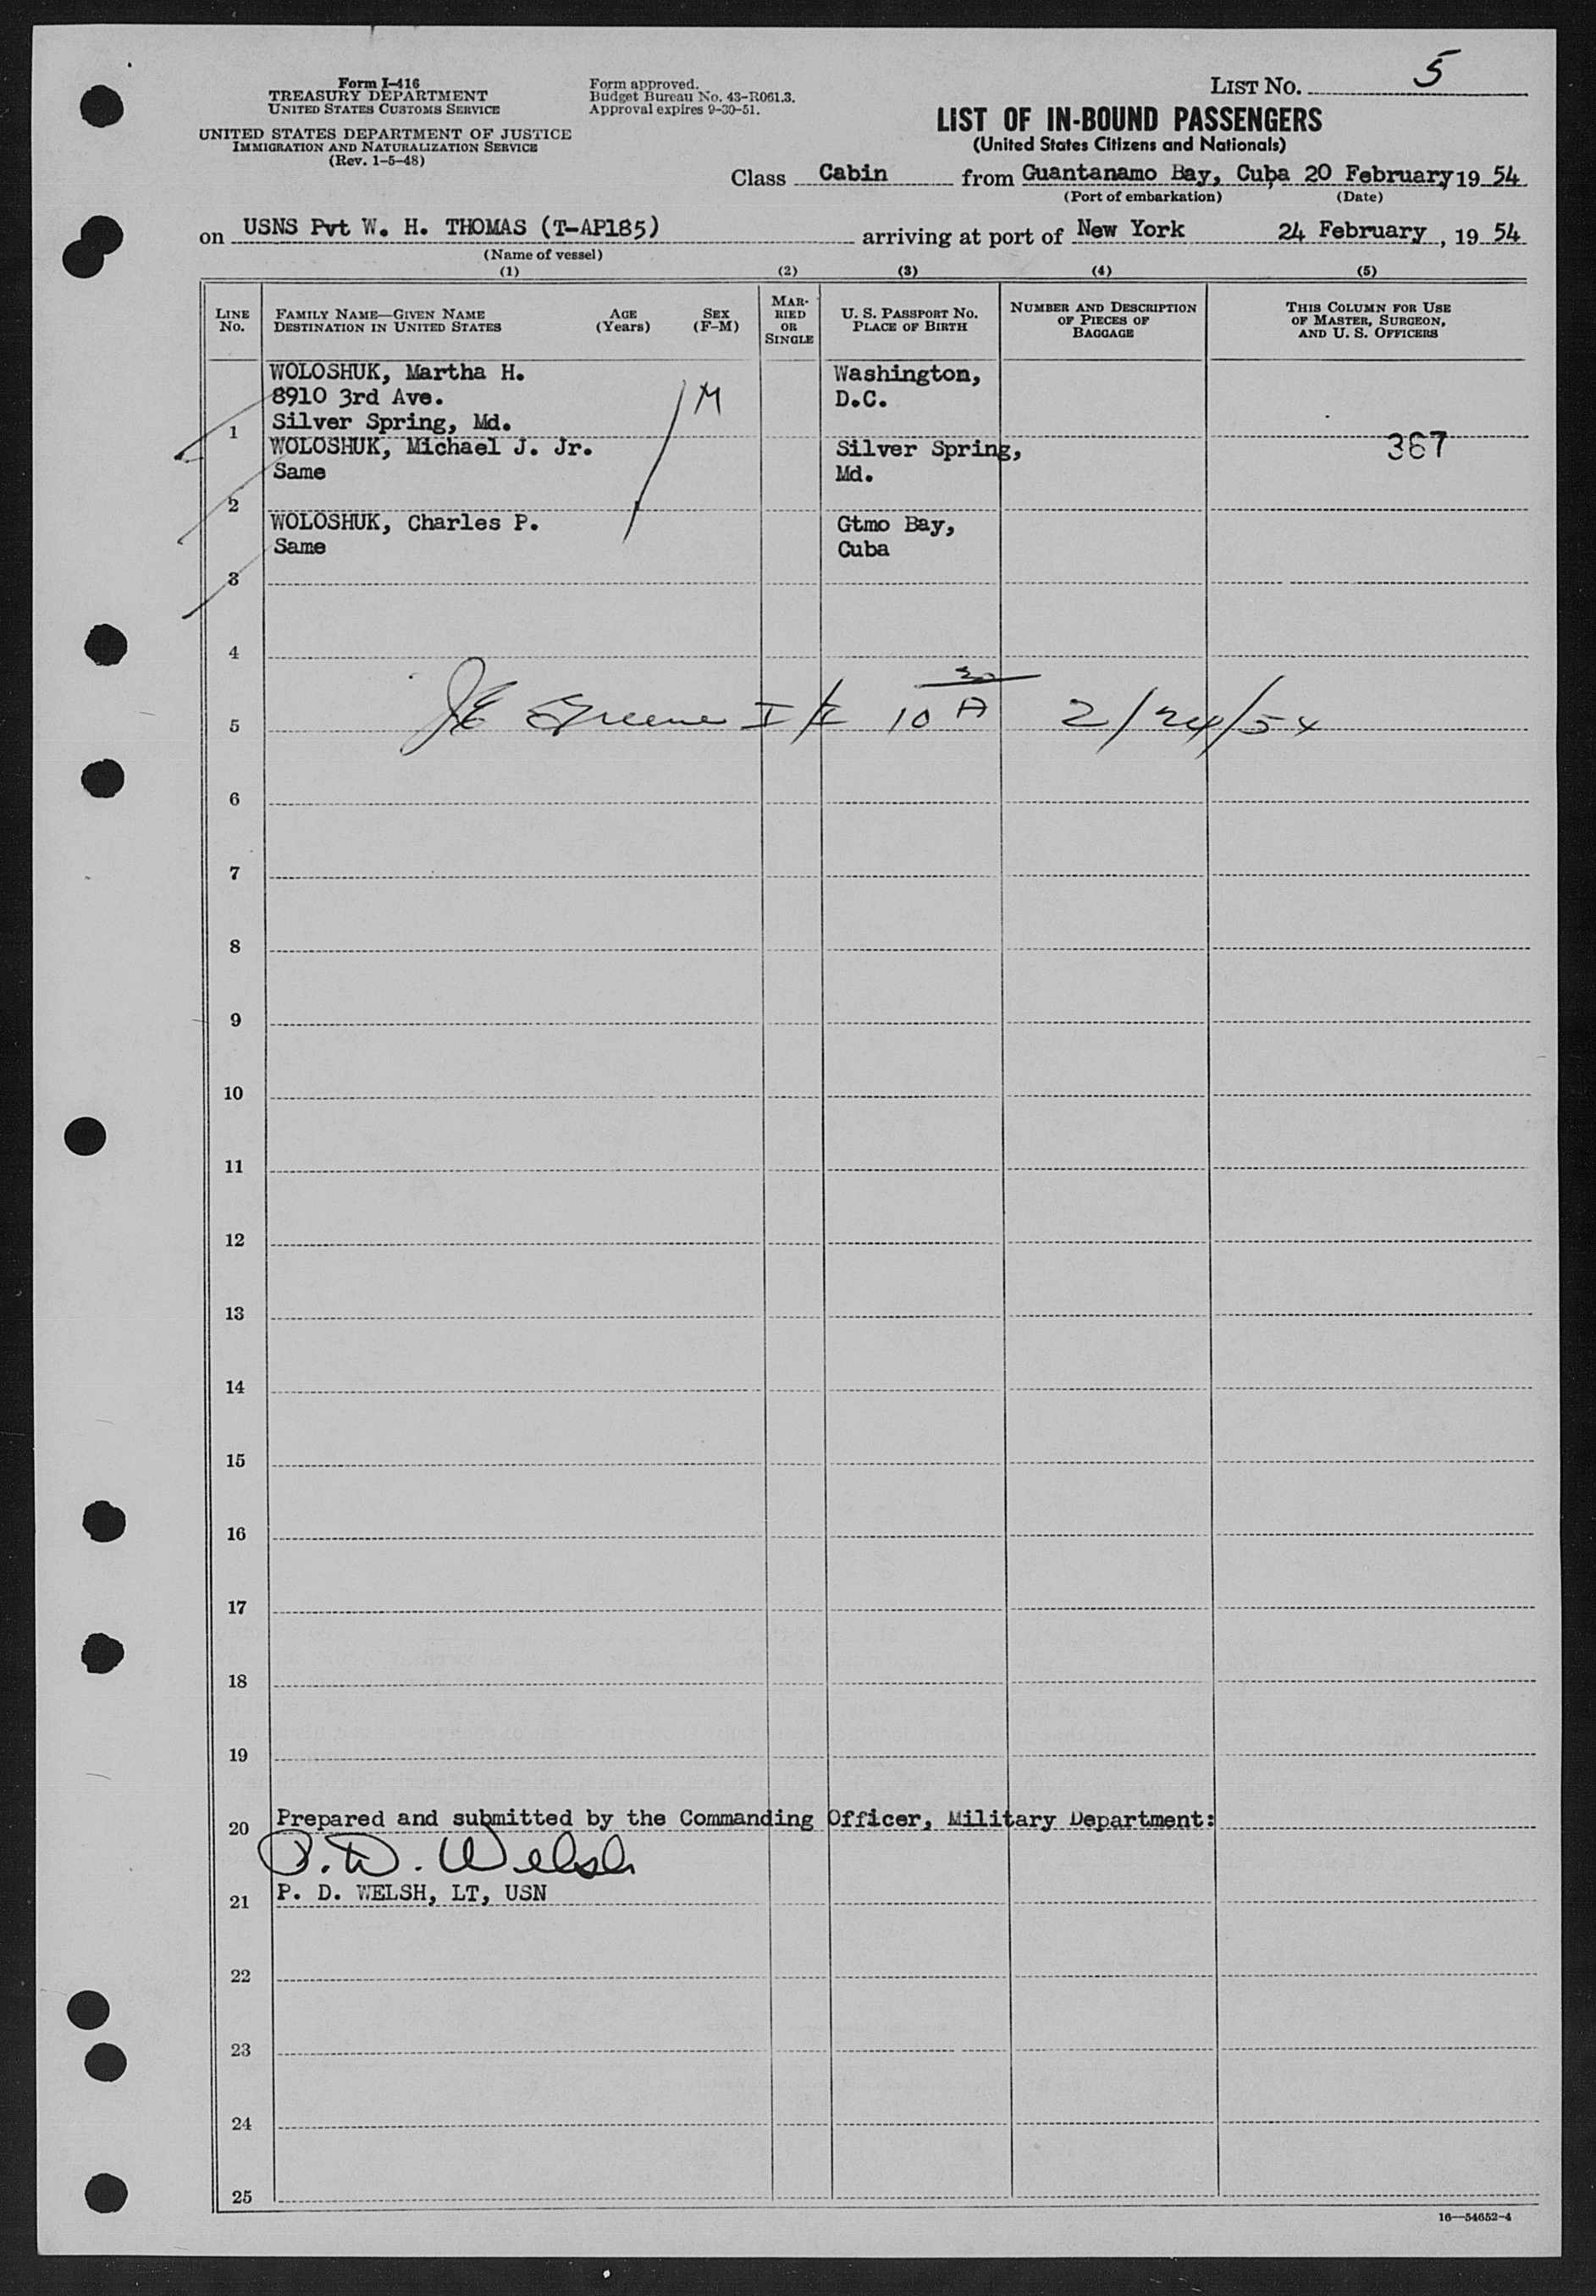 Form I-416
TREASURY DEPARTMENT
UNITED STATES CUSTOMS SERVICE
UNITED STATES DEPARTMENT OF JUSTICE
IMMIGRATION AND NATURALIZATION SERVICE
(Rev. 1-5-48)
Form approved.
Budget Bureau No. 43-R061.3.
Approval expires 9-30-51.
LIST NO. 5
LIST OF IN-BOUND PASSENGERS
(United States Citizens and Nationals)
Class Cabin from Guantanamo Bay, Cuba 20 February 19 54
(Port of embarkation) (Date)
on USNS Pvt W. H. THOMAS (T-AP185) arriving at port of New York 24 February, 19 54
(Name of vessel)
(1) (2) (3) (4) (5)
LINE No. FAMILY NAME—GIVEN NAME DESTINATION IN UNITED STATES AGE (Years) SEX (F-M) MARRIED OR SINGLE U. S. PASSPORT NO. PLACE OF BIRTH NUMBER AND DESCRIPTION OF PIECES OF BAGGAGE THIS COLUMN FOR USE OF MASTER, SURGEON, AND U. S. OFFICERS
WOLOSHUK, Martha H. Washington,
8910 3rd Ave. M D.C.
Silver Spring, Md.
1
WOLOSHUK, Michael J. Jr. Silver Spring, 367
Same Md.
2
WOLOSHUK, Charles P. Gtmo Bay,
Same Cuba
3
4
5 JE Greene I/I 10 30 A 2/24/54
6
7
8
9
10
11
12
13
14
15
16
17
18
19
20 Prepared and submitted by the Commanding Officer, Military Department:
P. D. Welsh
21 P. D. WELSH, LT, USN
22
23
24
25
16—54652-4